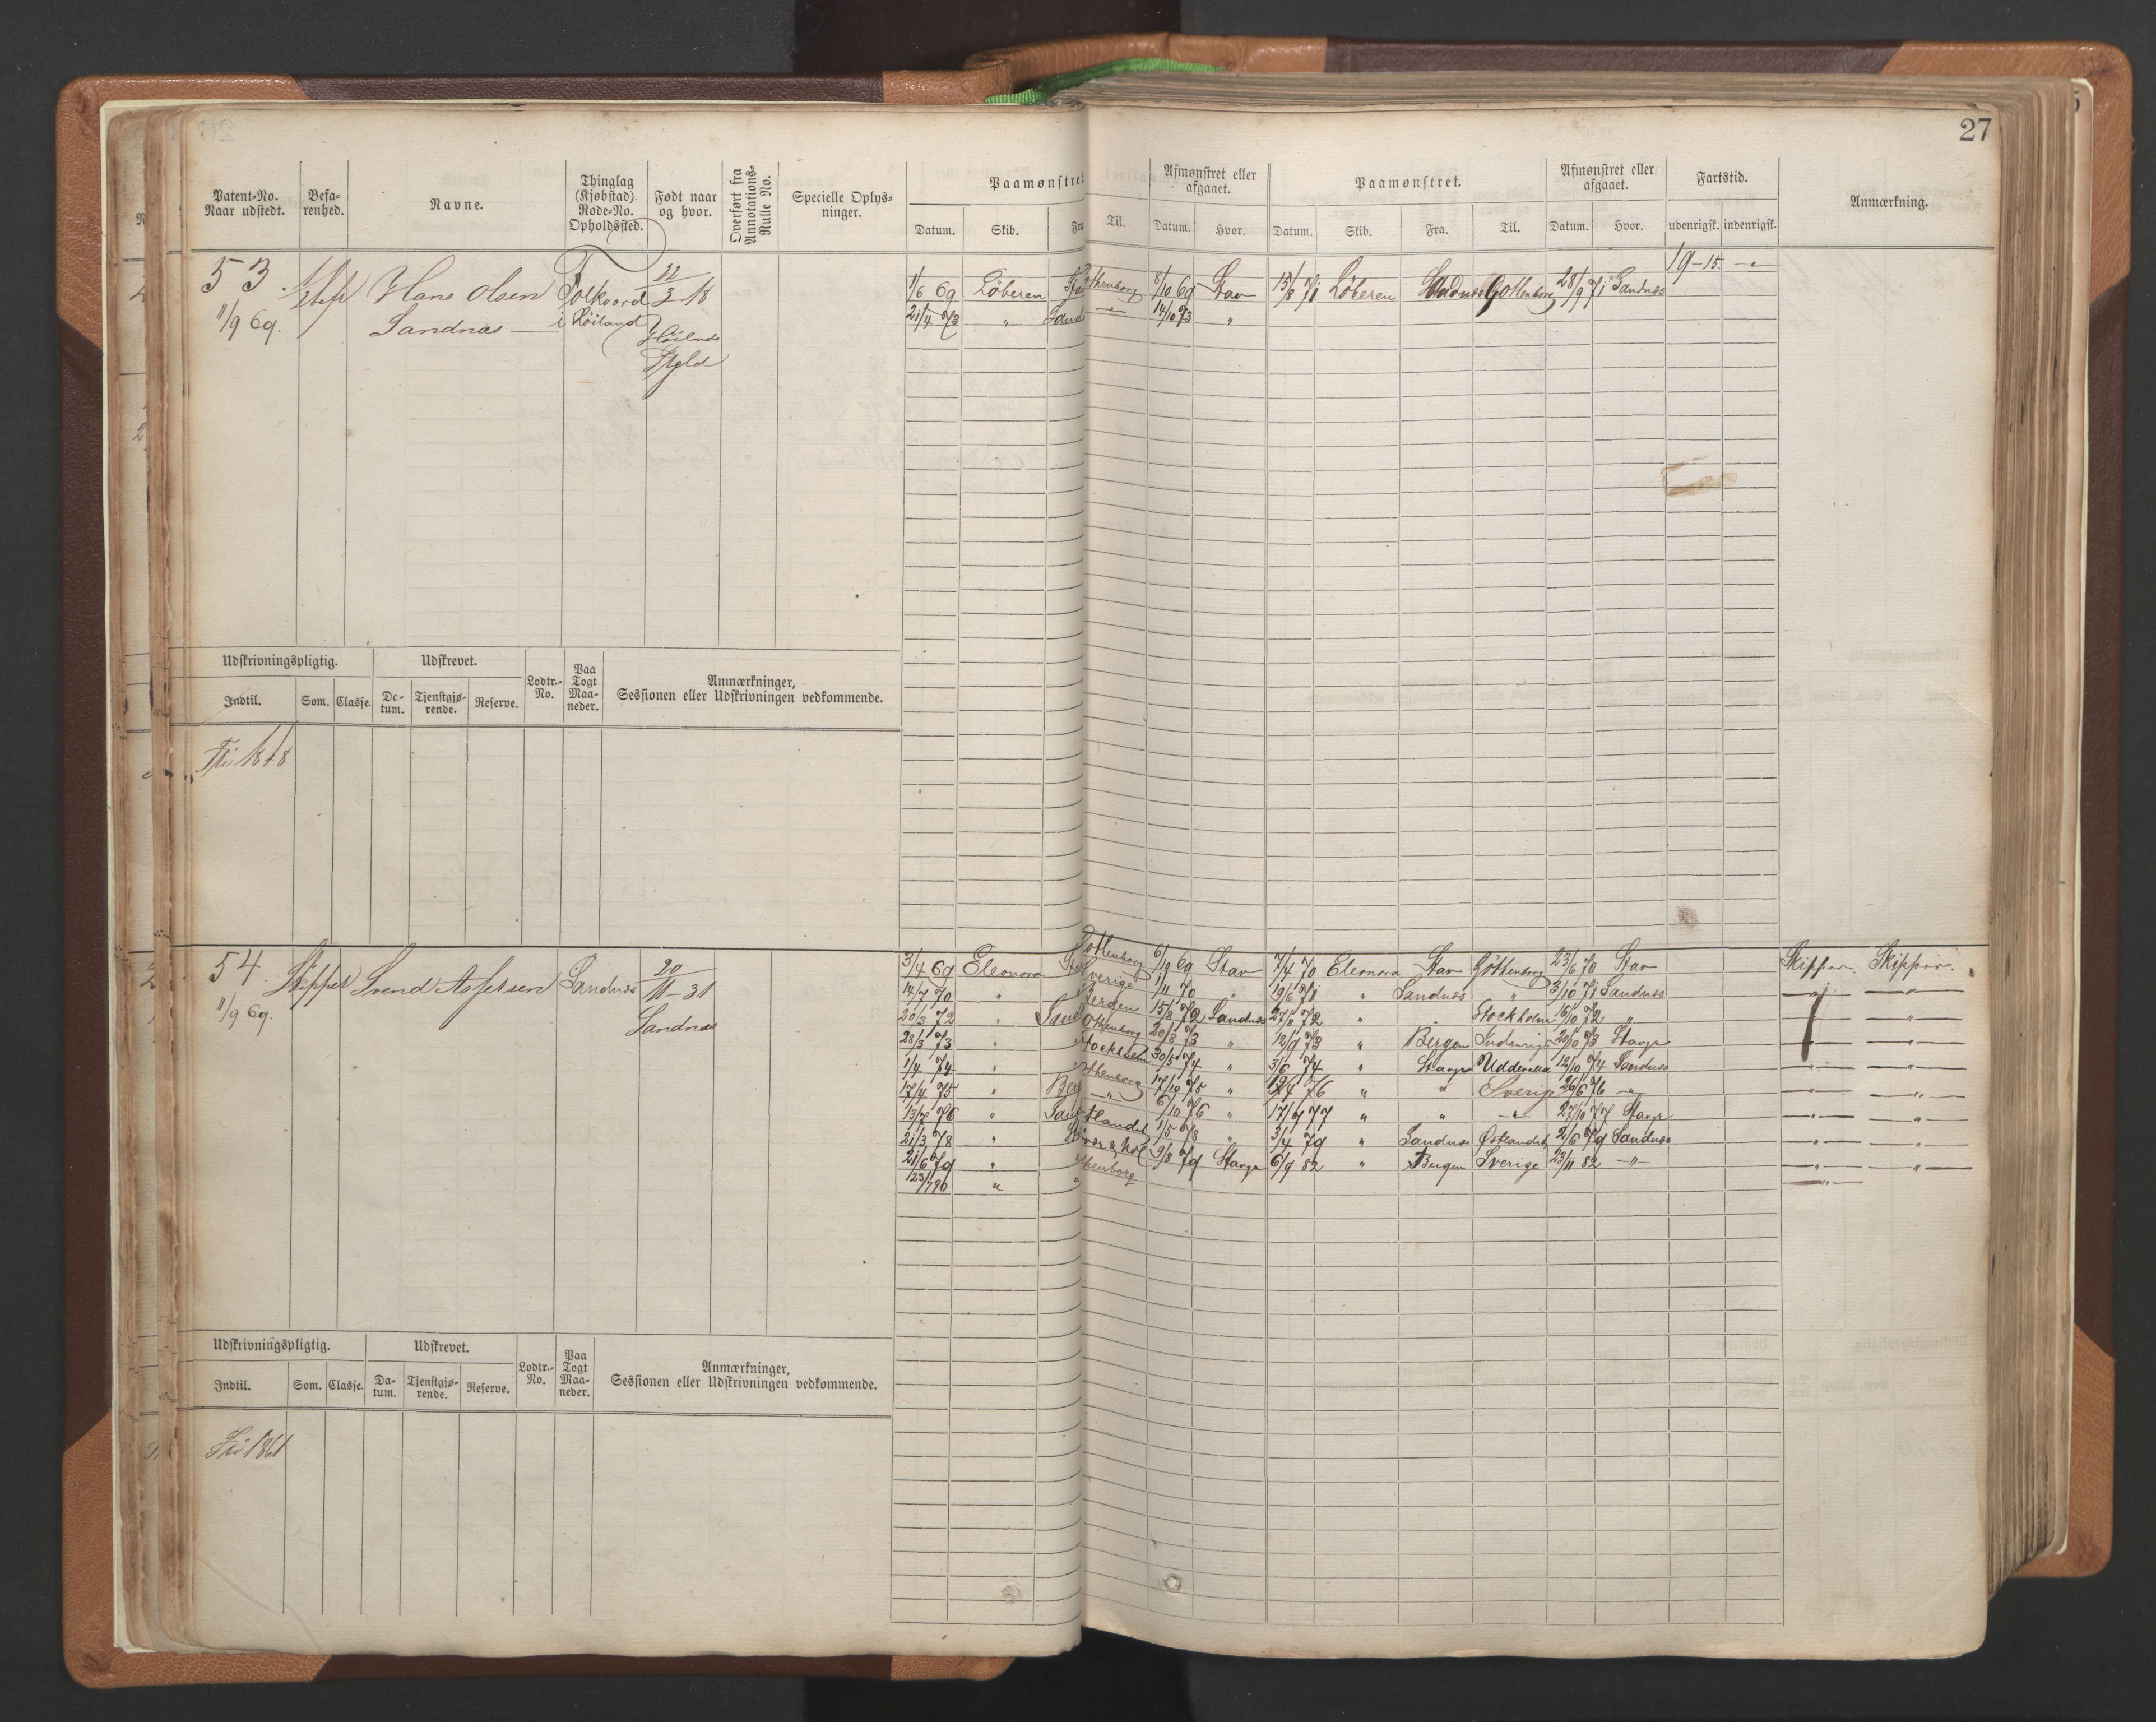 27
Patent-No. Naar udstedt.
Befa-renhed.
Navne.
Thinglag (Kjøbstad). Rode-No. Opholdssted.
Født naar og hvor.
Overført fra Annotations-Rulle No.
Specielle Oplys-ninger.
Paamønstret
Datum. Skib. Fra Til.
Afmønstret eller afgaaet.
Datum. Hvor.
Paamønstret.
Datum. Skib. Fra. Til.
Afmønstret eller afgaaet.
Datum. Hvor.
Fartstid.
udenrigsk. indenrigsk.
Anmærkning.
53. Hans Olsen Folkvord 22/3 18 1/6 69 Løberen thenborg 8/10 69 Stav 15/8 71 Løberen Sandnæs Gottenborg 28/9 71 Sandnæs 19-15 -"-
11/9 69. Sandnæs i Høiland 21/4 73 " Sand -"- 14/10 73 "
Høilands
Udskrivningspligtig. Udskrevet. Lodtr.-No. Paa Togt Maa-neder. Anmærkninger, Sessionen eller Udskrivningen vedkommende.
Indtil. Som. Classe. Da-tum. Tjenstgjø-rende. Reserve.
Fri 1848
54. Skipper Svend Sandnæs 20/11-31 3/4 69 Eleonora Gottenborg 6/10 69 Stav 7/4 70 Eleonora Stav Gøttenborg 23/6 70 Stav Skipper. Skipper.
11/9 69. Sandnæs 14/7 70 " Sverige 1/11 70 " 19/6 71 " Sandnæs " 3/10 71 Sandnæs -"- -"-
20/3 72 " Sand Bergen 15/8 72 Sandnæs 27/8 72 " " Stockholm 16/10 72 " -"- -"-
28/3 73 " ottenborg 20/8 73 " 12/9 73 " Bergen Indenrigs 20/10 73 Stavgr -"- -"-
1/4 74 " tockholm 30/5 74 " 3/6 74 " Stavgr Uddevalla 12/10 74 Sandnæs -"- -"-
17/4 75 " thenborg 17/10 75 " 76 " " Sverige 26/6 76 -"- -"- -"-
13/7 76 " Sand -"- 6/10 76 " 17/4 77 " " -"- 27/10 77 Stavgr -"- -"-
21/3 78 " stlandet 1/5 78 " 3/4 79 " Sandnæs Østlandet 2/6 79 Sandnæs -"- -"-
21/6 79 " 9/8 79 Stavgr 6/9 82 " Bergen Sverige 23/11 82 -"- -"- -"-
" " thenborg -"-
Udskrivningspligtig. Udskrevet. Lodtr.-No. Paa Togt Maa-neder. Anmærkninger, Sessionen eller Udskrivningen vedkommende.
Indtil. Som. Classe. Da-tum. Tjenstgjø-rende. Reserve.
Fri 1861